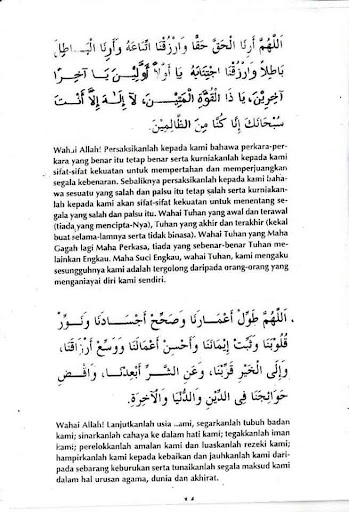 اَللّٰهُمَّ أَرِنَا الْحَقَّ حَقًّا وَارْزُقْنَا اتِّبَاعَهُ وَأَرِنَا الْبَاطِلَ
بَاطِلًا وَارْزُقْنَا اجْتِنَابَهُ يَا أَوَّلَ الْأَوَّلِيْنَ يَا آخِرَ
آخِرِيْنَ، يَا ذَا الْقُوَّةِ الْمَتِيْنَ، لَا إِلٰهَ إِلَّا أَنْتَ
سُبْحَانَكَ إِنَّا كُنَّا مِنَ الظَّالِمِيْنَ.
Wahai Allah! Persaksikanlah kepada kami bahawa perkara-per-
kara yang benar itu tetap benar serta kurniakanlah kepada kami
sifat-sifat kekuatan untuk mempertahan dan memperjuangkan
segala kebenaran. Sebaliknya persaksikanlah kepada kami baha-
wa sesuatu yang salah dan palsu itu tetap salah serta kurniakan-
lah kepada kami akan sifat-sifat kekuatan untuk menentang se-
gala yang salah dan palsu itu. Wahai Tuhan yang awal dan terawal
(tiada yang mencipta-Nya), Tuhan yang akhir dan terakhir (kekal
buat selama-lamnya serta tidak binasa). Wahai Tuhan yang Maha
Gagah lagi Maha Perkasa, tiada yang sebenar-benar Tuhan me-
lainkan Engkau. Maha Suci Engkau, wahai Tuhan, kami mengaku
sesungguhnya kami adalah tergolong daripada orang-orang yang
menganiayai diri kami sendiri.
اَللّٰهُمَّ طَوِّلْ أَعْمَارَنَا وَصَحِّحْ أَجْسَادَنَا وَنَوِّرْ
قُلُوْبَنَا وَثَبِّتْ إِيْمَانَنَا وَأَحْسِنْ أَعْمَالَنَا وَوَسِّعْ أَرْزَاقَنَا،
وَإِلَى الْخَيْرِ قَرِّبْنَا، وَعَنِ الشَّرِّ أَبْعِدْنَا، وَاقْضِ
حَوَائِجَنَا فِى الدِّيْنِ وَالدُّنْيَا وَالْآخِرَةِ.
Wahai Allah! Lanjutkanlah usia kami, segarkanlah tubuh badan
kami; sinarkanlah cahaya ke dalam hati kami; tegakkanlah iman
kami; perelokkanlah amalan kami dan luaskanlah rezeki kami;
hampirkanlah kami kepada kebaikan dan jauhkanlah kami dari-
pada sebarang keburukan serta tunaikanlah segala maksud kami
dalam hal urusan agama, dunia dan akhirat.